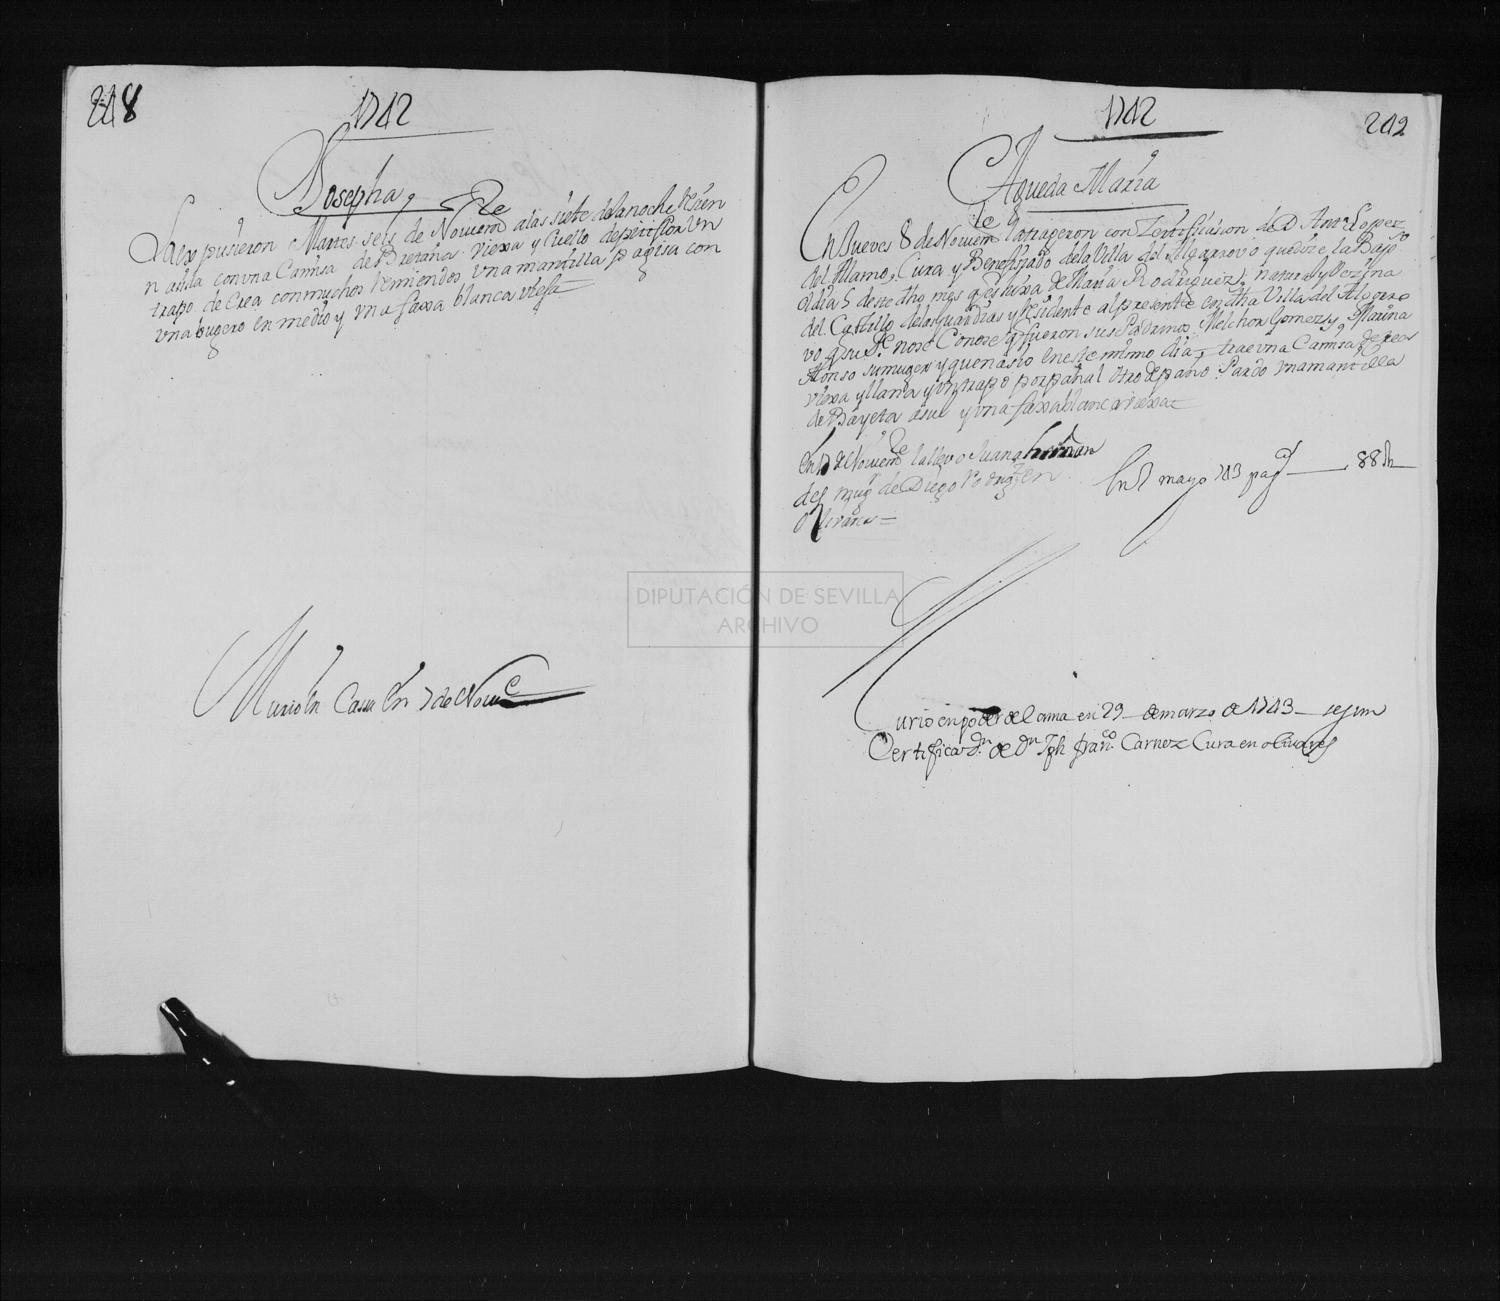 248
1742
Josepha
La expusieron Martes seis de Nouiem.re a las siete de la noche Resien
n asida con vna Camisa de Bretaña viexa y Cuello de petiflor Vn
trapo de Crea con muchos Remiendos vna mantilla pagisa con
vn augero en medio y vna faxa blanca viexa=
Murio en Casa en 7 de Nou.e
1742
242
Agueda Maria
En Jueves 8 de Nouiem.re la trageron con Zertificasion de D. Ant.o Lopez
del Alamo, Cura y Benefisiado de la Villa del Algarrovo que dise la Bap.so
el dia 5 de este dho mes q es hixa de Maria Rodriguez, natural y Vezina
del Castillo de las Guardias y Residente al presente en dha Villa del Algarro
vo q su P.e no se Conose q fueron sus Padrinos Melchor Gomez y Marina
Alonso su muger y que nasio en este mismo dia, trae vna Camisa de crea
viexa y llana y vn trapo por pañal otro de paño Pardo vna mantilla
de Bayeta asul y vna faxa blanca viexa=
En 17 de Nouiem.re la llevo Juana hernan
des mug.r de Diego Rodrig.z en
Olivares=
En 8 mayo 743 pag.do 88 R
Murio en poder del ama en 29 de marzo de 1743 segun
Certificaz.n de D.n Jph fran.co Carnez Cura en olivares
DIPUTACIÓN DE SEVILLA
ARCHIVO